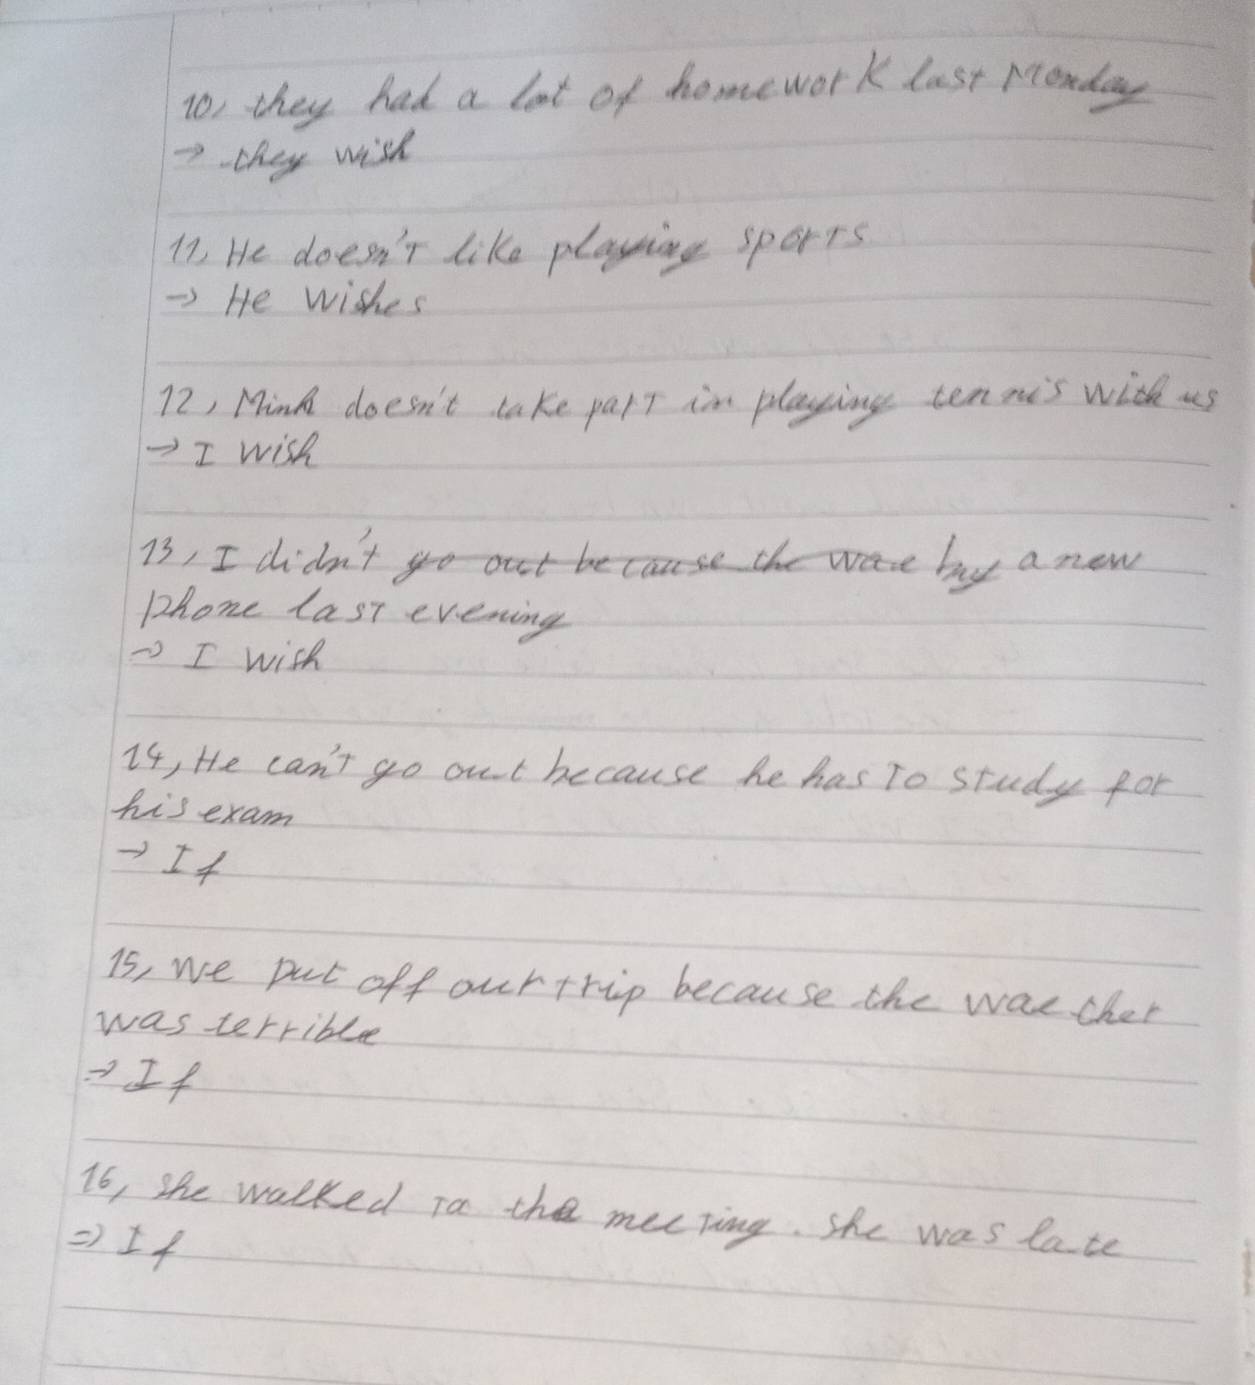 10, they had a lot of homework last Monday
→ they wish
11, He doesn't like playing sports
→ He wishes
12, Minh doesn't take part in playing tennis with us
→ I wish
13, I didn't go out because the wae buy a new
phone last evening
→ I wish
14, He can't go out because he has to study for
his exam
→ If
15, we put off our trip because the waether
was terrible
→ If
16, she walked to the meeting. she was late
⇒ If